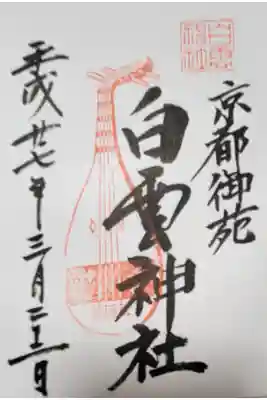 京都御苑
白雲神社
平成廿七年三月二十一日